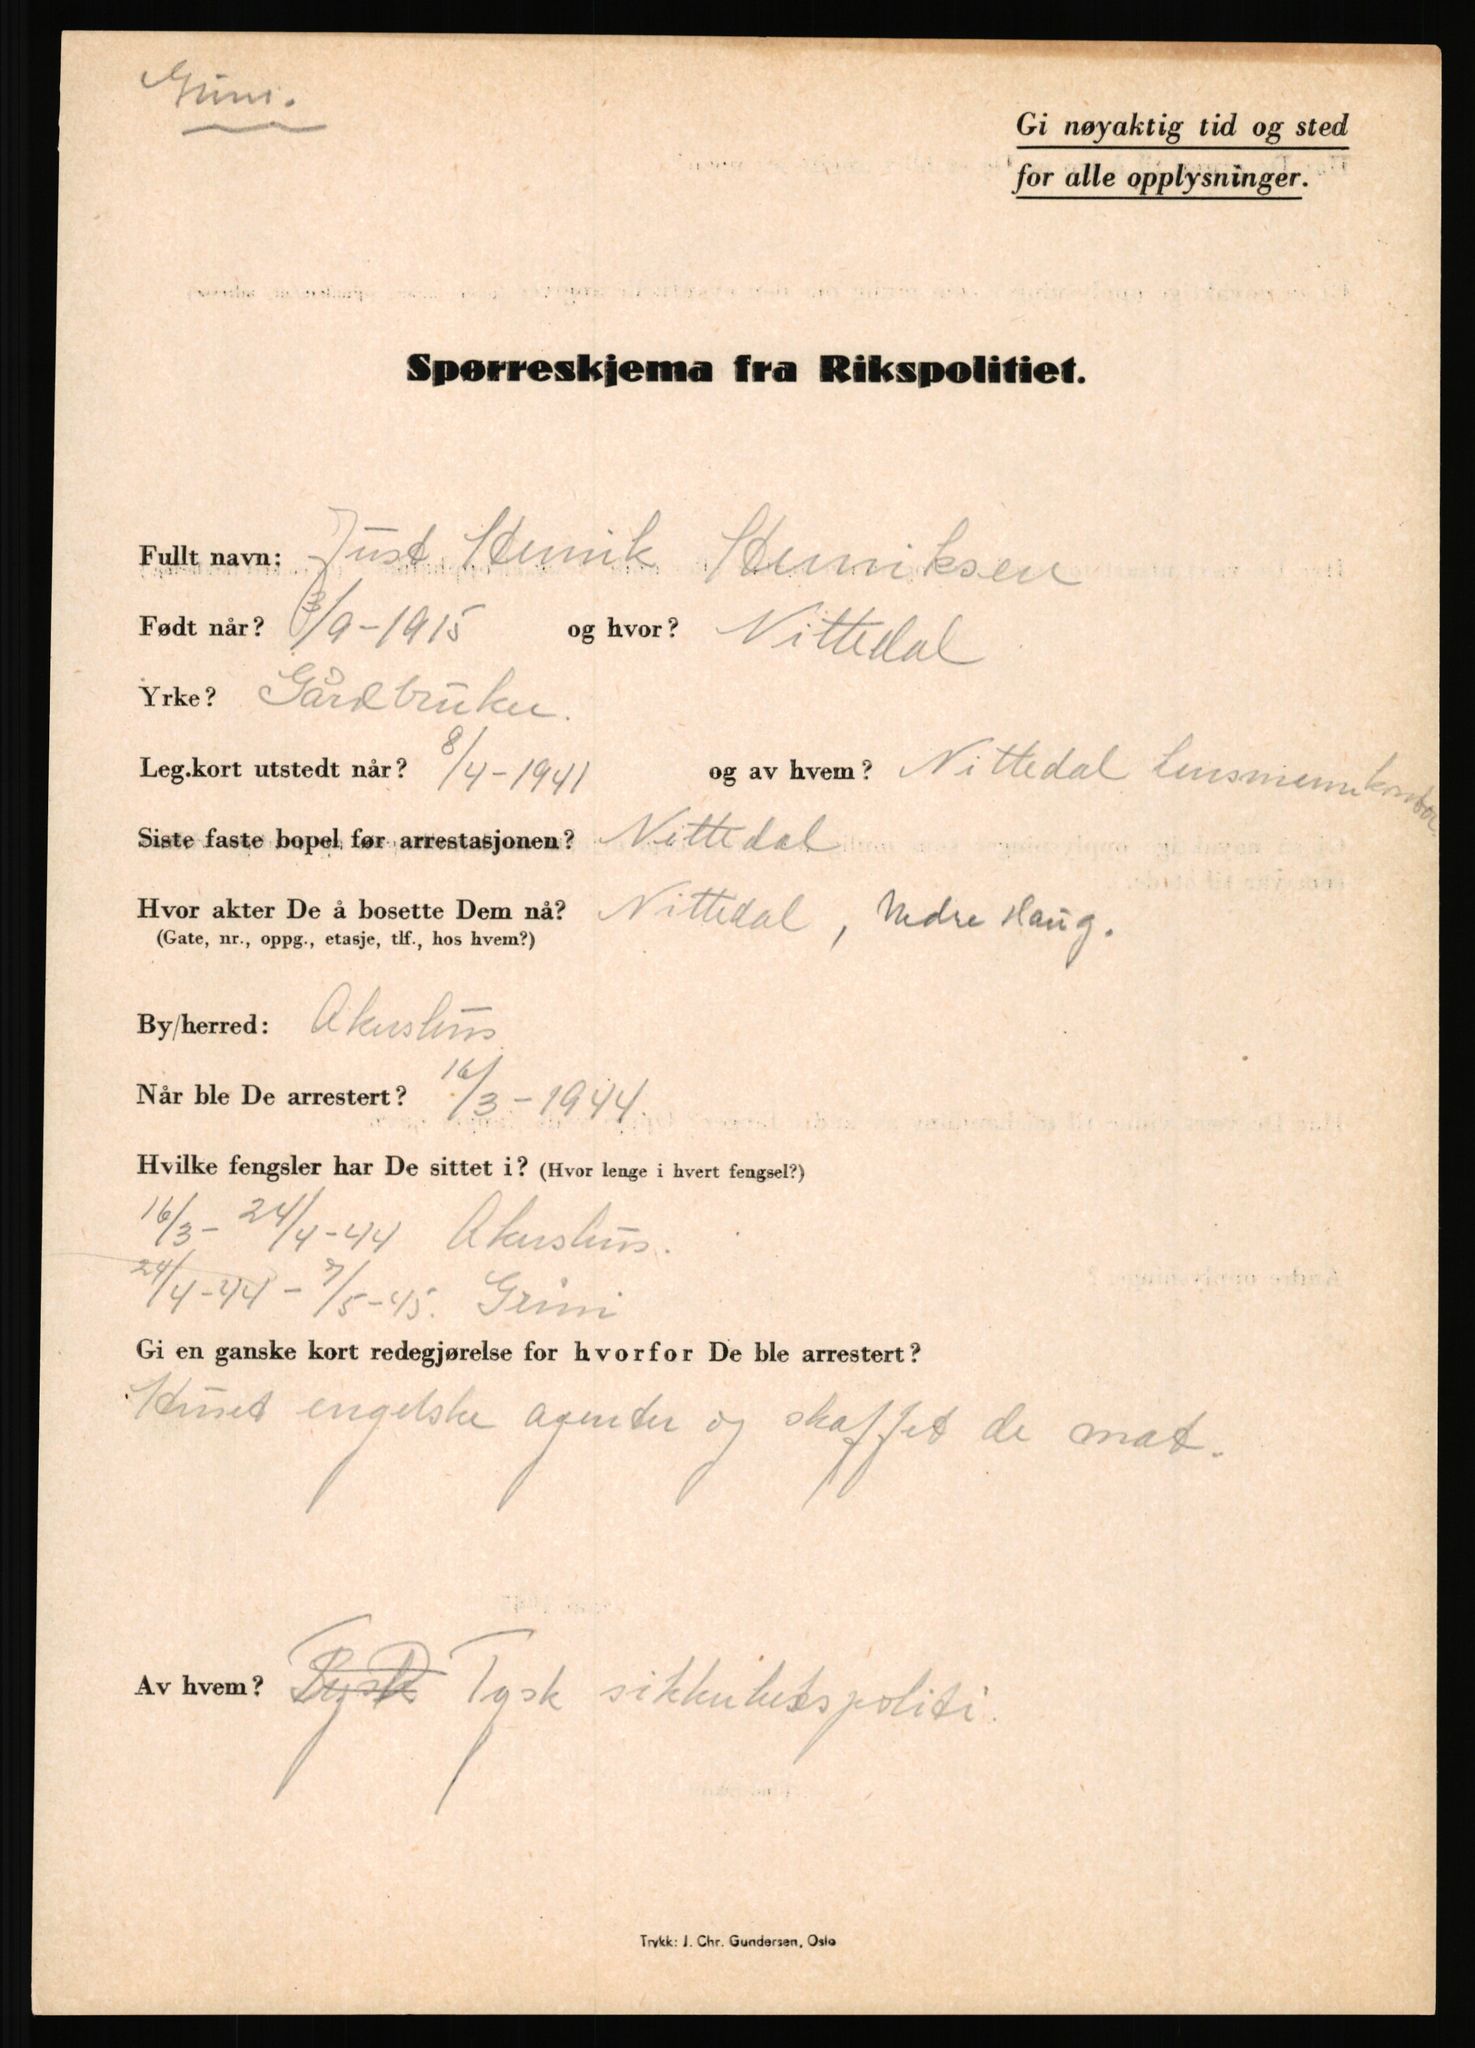 Grini.
Gi nøyaktig tid og sted
for alle opplysninger.
Spørreskjema fra Rikspolitiet.
Fullt navn: Just Henrik Henriksen
Født når? 3/9-1915 og hvor? Nittedal
Yrke? Gårdbruker.
Leg.kort utstedt når? 8/4-1941 og av hvem? Nittedal Lensmennkontor
Siste faste bopel før arrestasjonen? Nittedal
Hvor akter De å bosette Dem nå? Nittedal, Nedre Haug.
(Gate, nr., oppg., etasje, tlf., hos hvem?)
By/herred: Akershus
Når ble De arrestert? 16/3-1944
Hvilke fengsler har De sittet i? (Hvor lenge i hvert fengsel?)
16/3- 24/4-44 Akershus.
24/4-44 - 7/5-45. Grini
Gi en ganske kort redegjørelse for hvorfor De ble arrestert?
Huset engelske agenter og skaffet de mat.
Av hvem? Tysk sikkerhetspoliti.
Trykk: J. Chr. Gundersen, Oslo